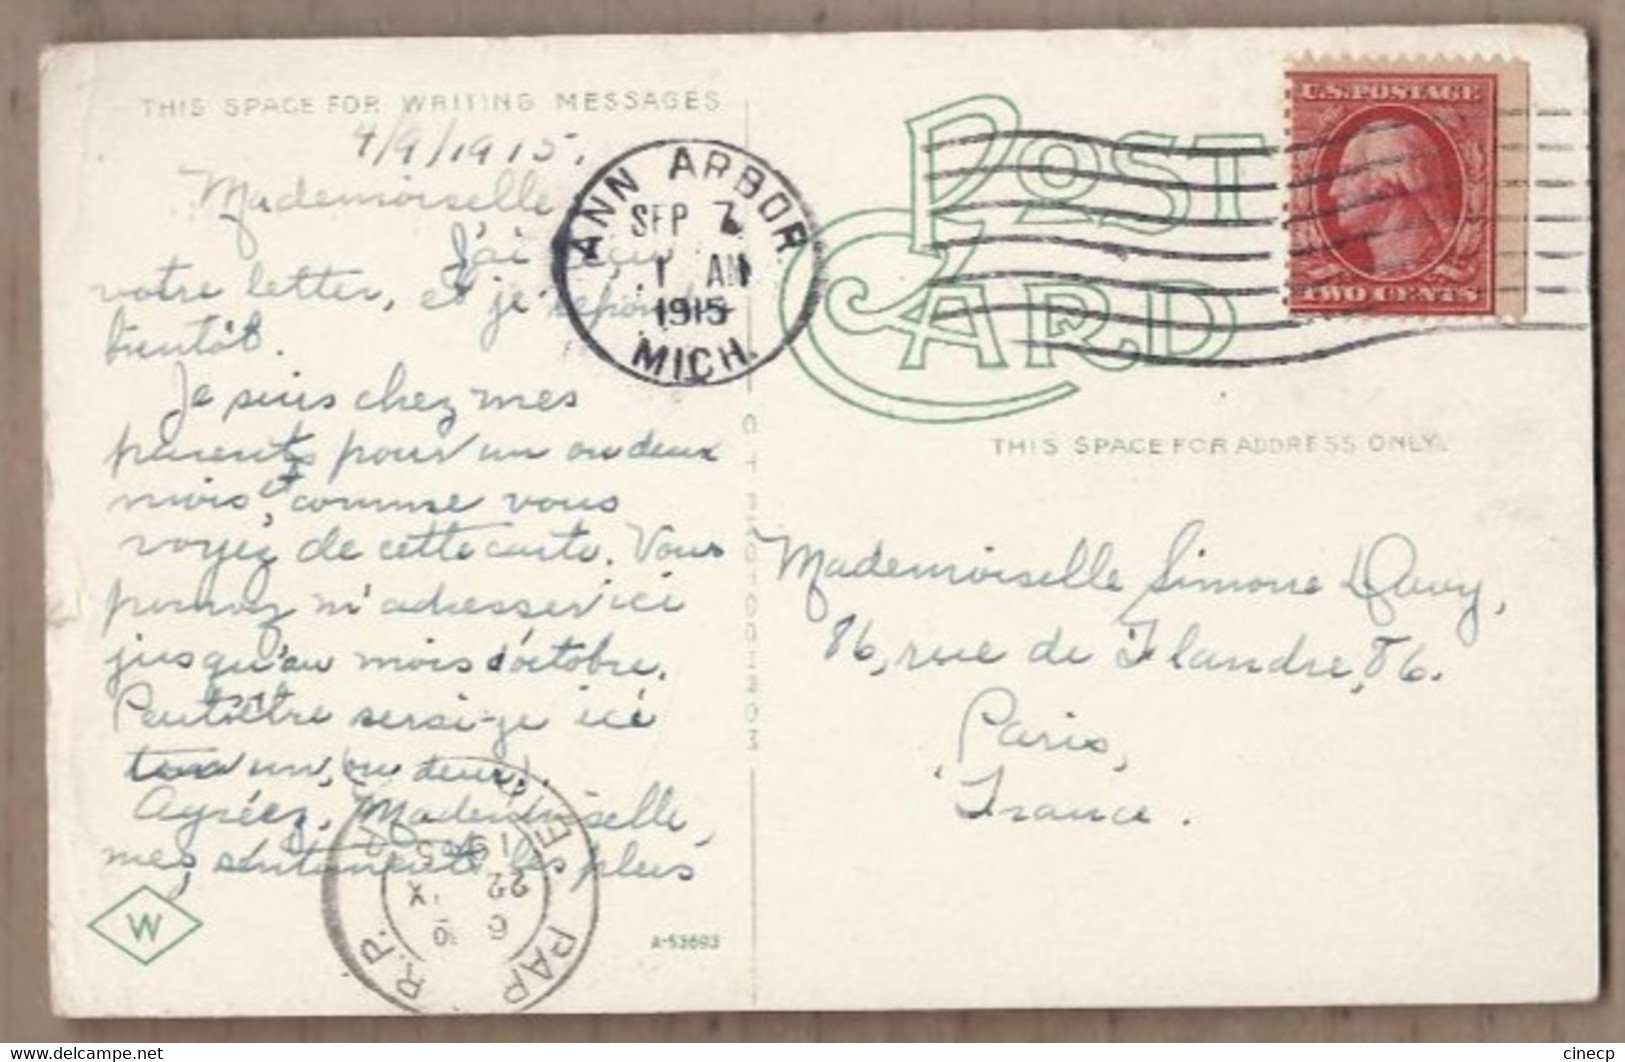 THIS SPACE FOR WRITING MESSAGES
4/9/1915.
Mademoiselle
J'ai reçu
votre letter, et je réponds
bientôt.
Je suis chez mes
parents pour un ou deux
mois, et comme vous
voyez de cette carte. Vous
pourrez m'adresser ici
jusqu'au mois d'octobre.
Peut-être serai-je ici
un, (ou deux).
Agréez, Mademoiselle,
mes sentiments les plus
W
A-53693
ANN ARBOR
SEP 7
1 AM
1915
MICH.
POST
CARD
U.S. POSTAGE
TWO CENTS
THIS SPACE FOR ADDRESS ONLY.
Mademoiselle Simone Davy,
86, rue de Flandre, 86.
Paris,
France.
R.P.
6
22
IX
15
cinecp